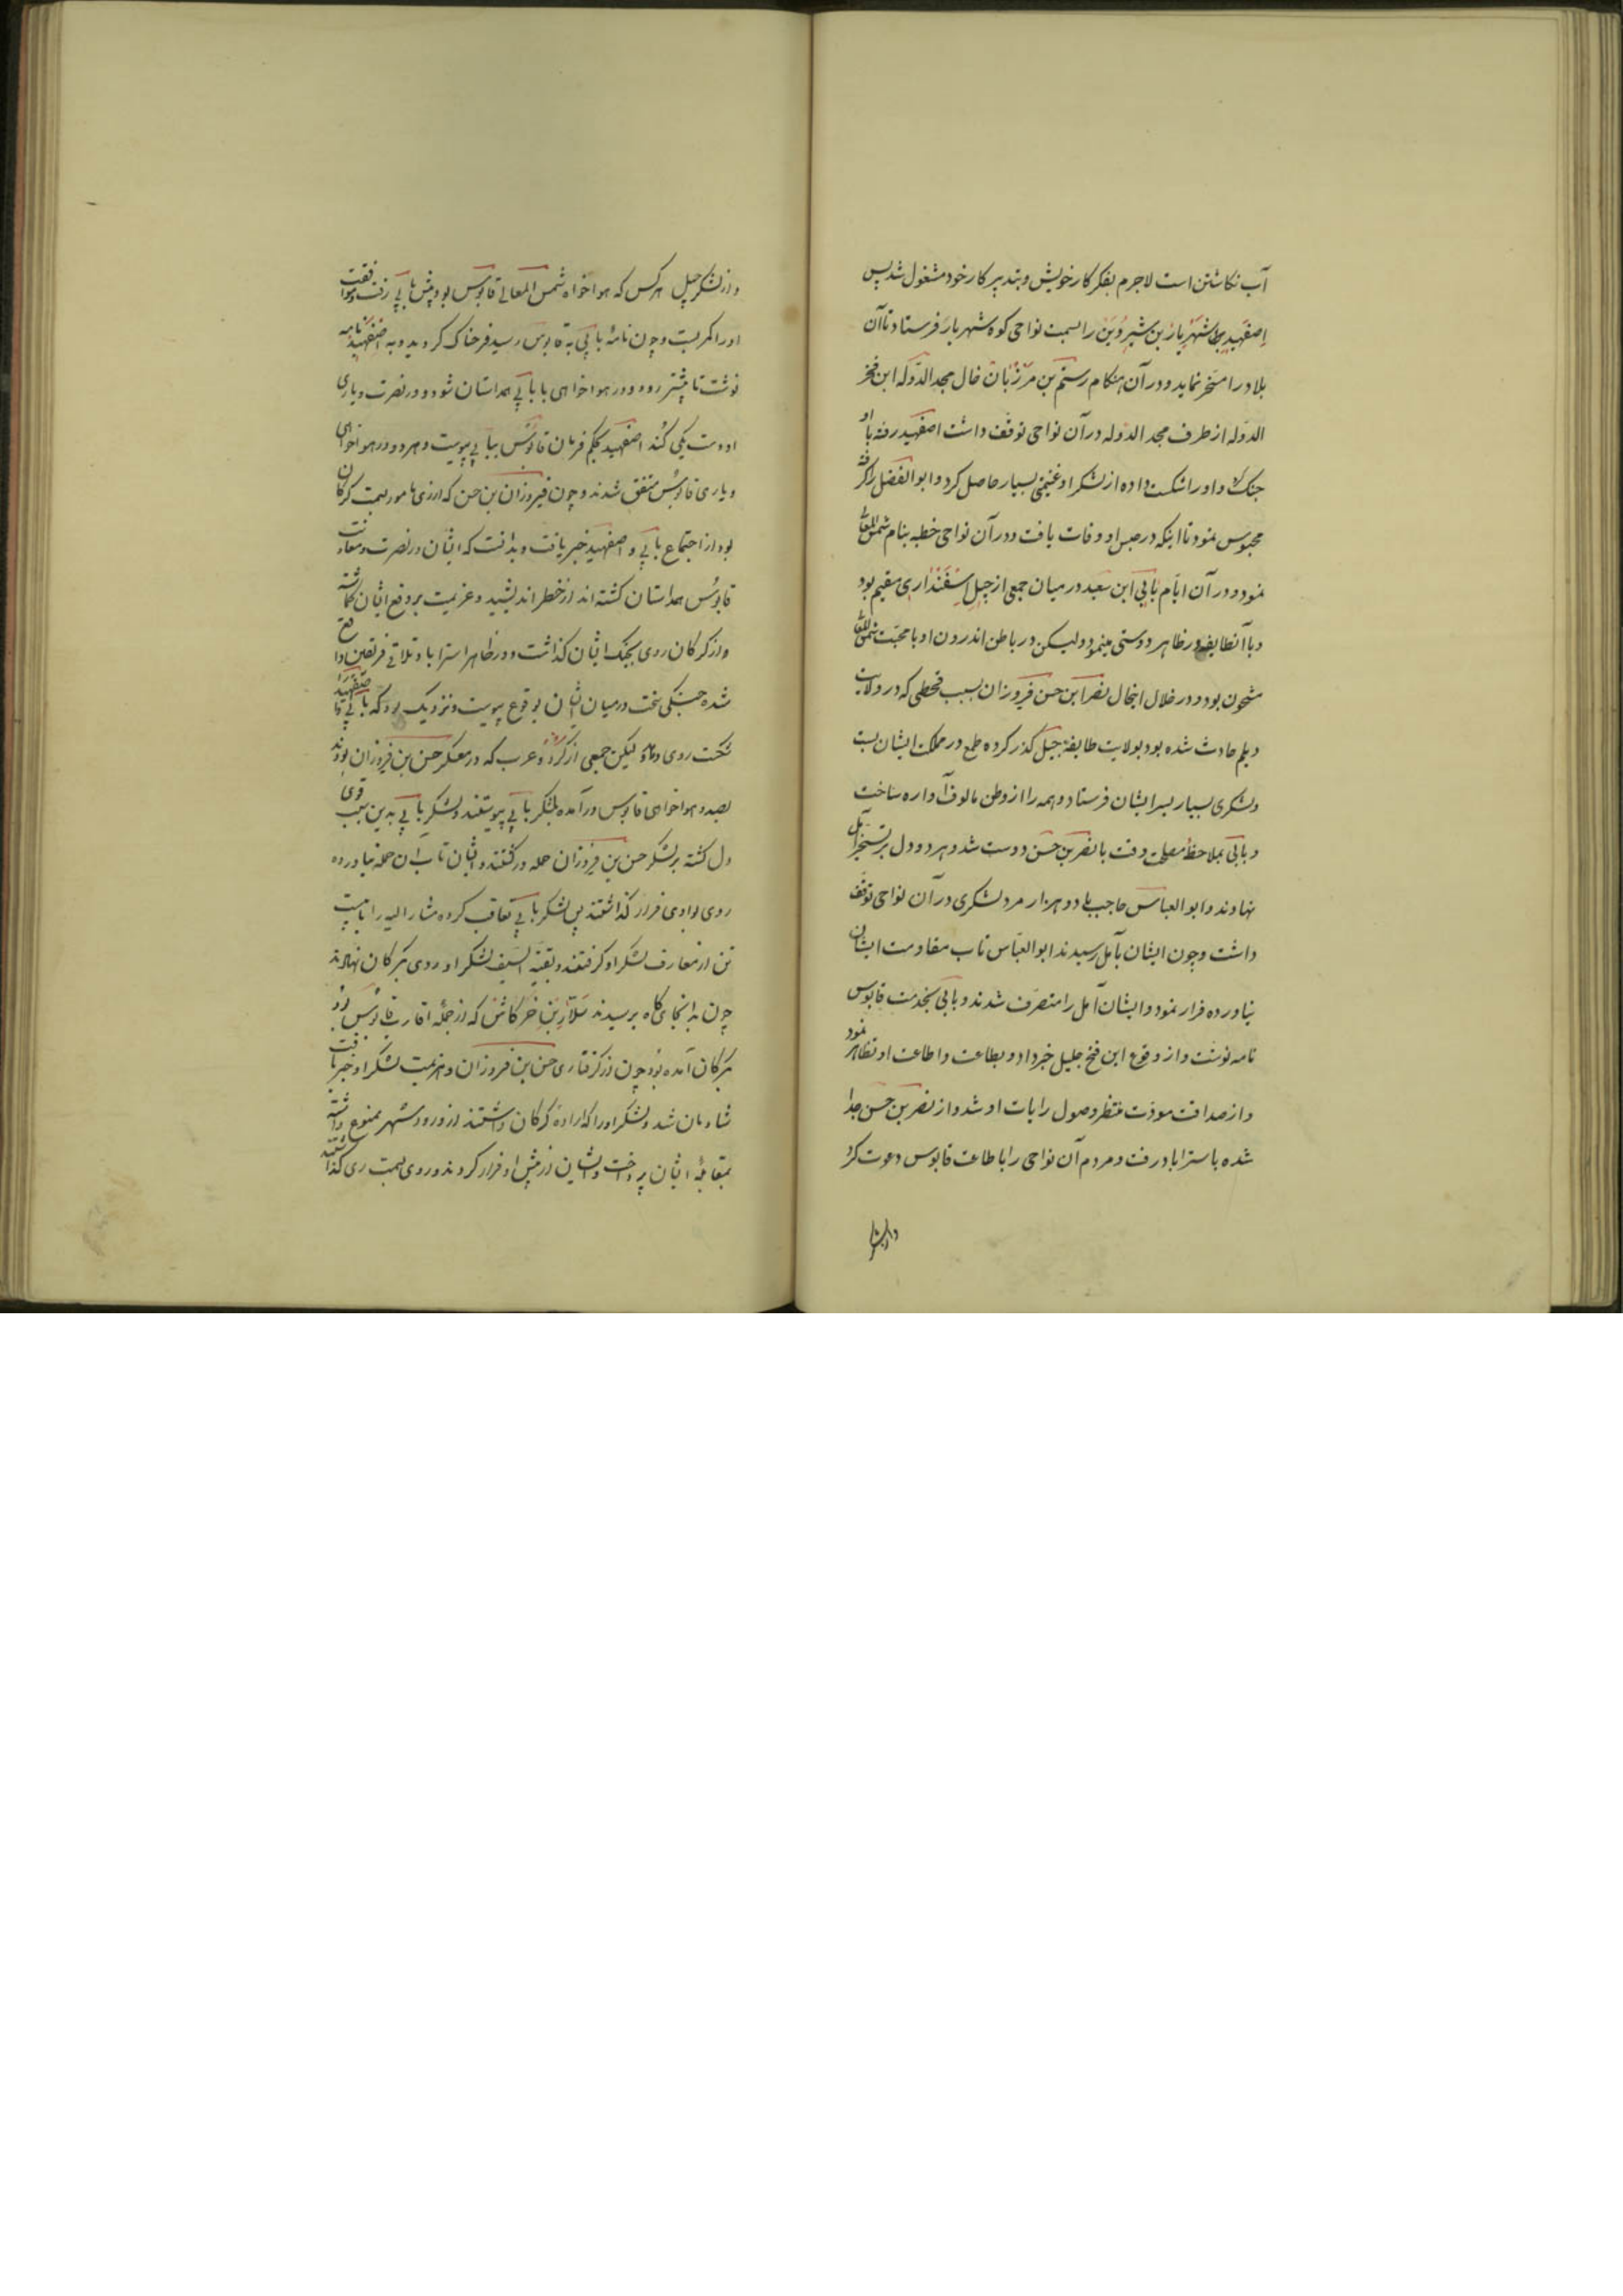 آب نکاشتن است لاجرم بفکر کار خویش و بتدبیر کار خود مشغول شد پس
اصفهبد شهریار بن شیروین را بسمت نواحی کوه شهریار فرستاد تا آن
بلاد را مسخر نماید و در آن هنکام رستم بن مرزبان خال مجد الدوله ابن فخر
الدوله از طرف مجد الدوله در آن نواحی توقف داشت اصفهبد رفته با او
جنک کرد و او را شکست داده از لشکر او غنیمتی بسیار حاصل کرد و ابو الفضل را کرفته
محبوس نمود تا اینکه در حبس او وفات یافت و در آن نواحی خطبه بنام شمس المعالی
نمود و در آن ایام بابی ابن سعید در میان جمعی از جبل اسفنداری مقیم بود
و با آنطایفه در ظاهر دوستی مینمود و لیکن در باطن اندرون او با محبت شمس المعالی
مشحون بود و در خلال اینحال نصر ابن حسن فیروزان بسبب قحطی که در ولایت
دیلم حادث شده بود بولایت طایفه جبل کذر کرده طمع در مملکت ایشان بست
و لشکری بسیار بسر ایشان فرستاد و همه را از وطن مالوف آواره ساخت
و بابی بملاحظه مصلحت وقت با نصر بن حسن دوست شد و هر دو دل بر تسخیر آمل
نهاوند و ابو العباس حاجب با دو هزار مرد لشکری در آن نواحی توقف
داشت و چون ایشان بآمل رسیدند ابو العباس تاب مقاومت ایشان
نیاورده فرار نمود و ایشان آمل را متصرف شدند و بابی بخدمت قابوس
نامه نوشت و از وقوع این فتح جلیل خبر داد و بطاعت و اطاعت او تظاهر نمود
و از صداقت مودت منتظر وصول رایات او شد و از نصر بن حسن جدا
شده باستراباد رفت و مردم آن نواحی را باطاعت قابوس دعوت کرد
و از لشکر جبل هر کس که هوا خواه شمس المعالی قابوس بود پیش بابی رفت و موافقت
او را کمر بست و چون نامه بابی به قابوس رسید فرحناک کردید و به اصفهبد نامه
نوشت تا پیشتر رود و در هوا خواهی با بابی همداستان شود و در نصرت و یاری
او دست یکی کند اصفهبد بحکم فرمان قابوس ببابی پیوست و هر دو در هوا خواهی
و یاری قابوس متفق شدند و چون فیروزان بن حسن که از ری مامور بسمت کرکان
بود از اجتماع بابی و اصفهبد خبر یافت و بدانست که ایشان در نصرت و معاونت
قابوس همداستان کشته اند از خطر اندیشید و عزیمت بر دفع ایشان کماشته
و از کرکان روی بجنک ایشان کذاشت و در ظاهر استراباد تلاقی فریقین واقع
شده جنکی سخت در میان ایشان بوقوع پیوست و نزدیک بود که بابی و اصفهبد را
شکست روی دهد لیکن جمعی از کرد و عرب که در معسکر حسن بن فیروزان بودند
بصدد هوا خواهی قابوس در آمده بلشکر بابی پیوستند و لشکر بابی بدین سبب قوی
دل کشته بر لشکر حسن بن فیروزان حمله ور کشتند و ایشان تاب آن حمله نیاورده
روی بوادی فرار کذاشتند پس لشکر بابی تعاقب کرده مشار الیه را با بیست
تن از معارف لشکر او کرفتند و بقیه السیف لشکر او روی بکرکان نهادند
چون بدانجایکاه برسیدند سلار بن خرکاش که از جمله اقارب قابوس بود
بکرکان آمده بود چون از کرفتاری حسن بن فیروزان و هزیمت لشکر او خبر یافت
شادمان شد و لشکر او را که اراده کرکان داشتند از ورود شهر ممنوع داشته
بمقابله ایشان پرداخت و ایشان از پیش او فرار کردند و روی بسمت ری کذاشتند